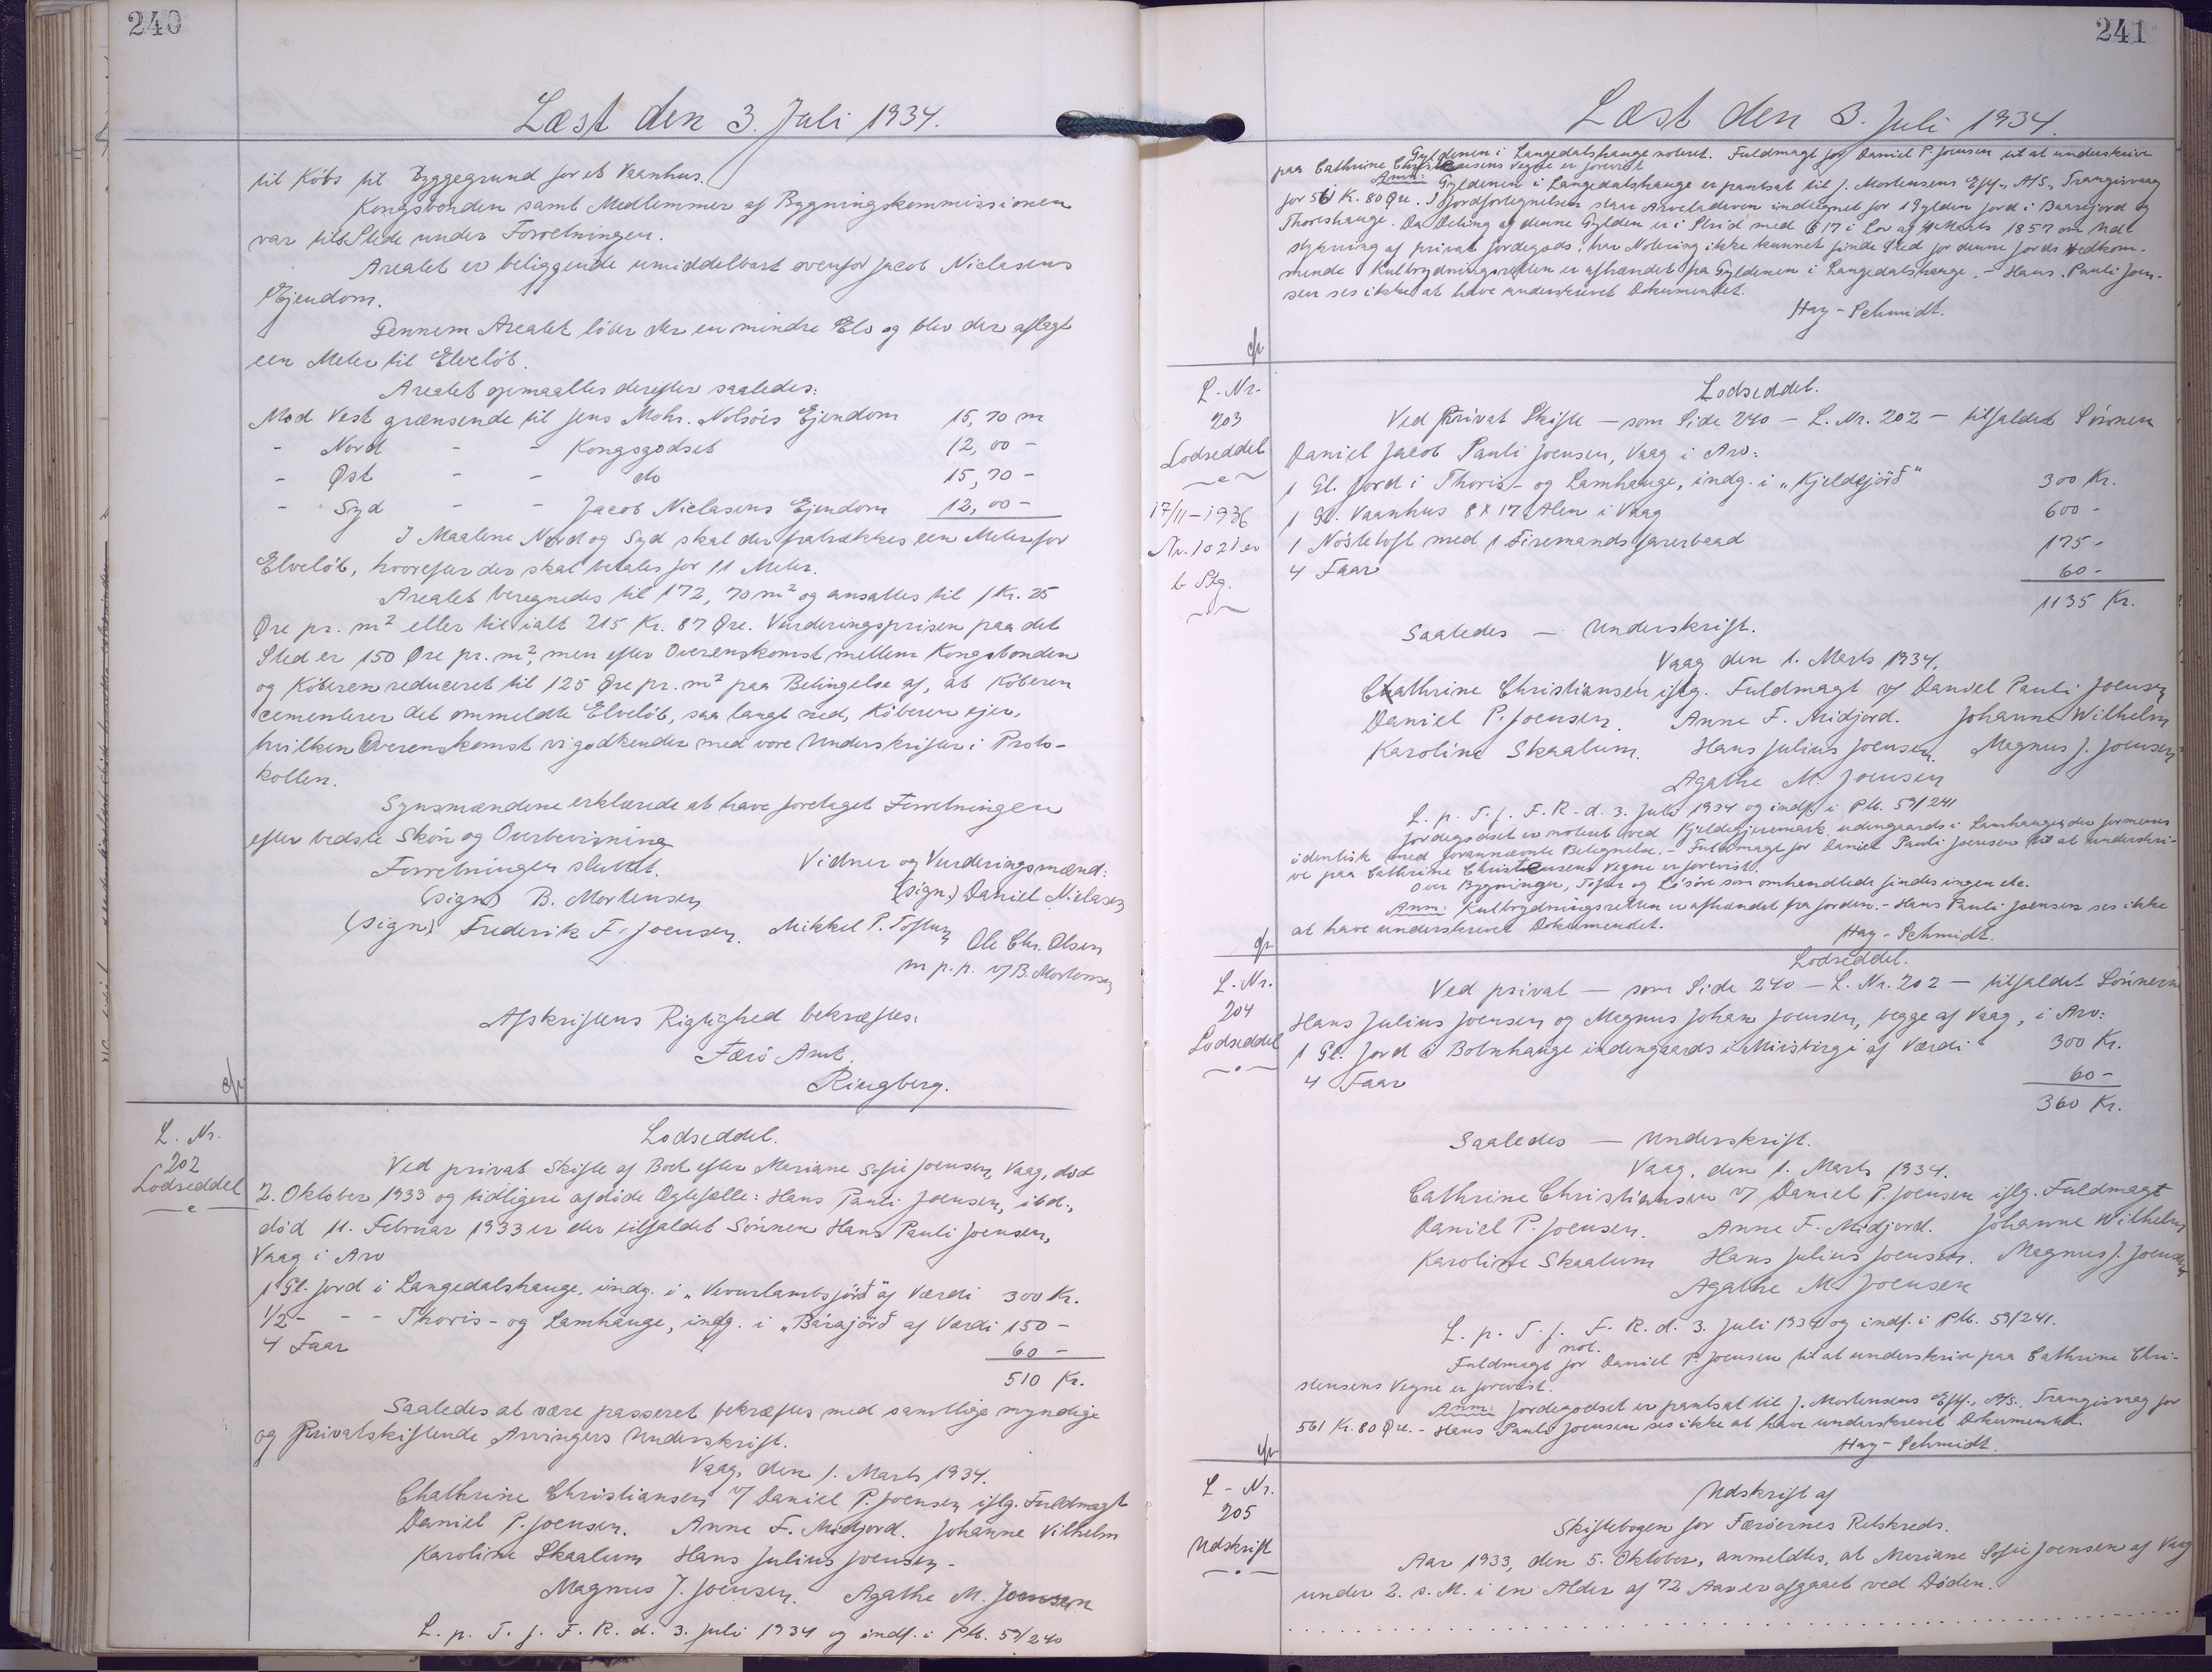 240
Læst den 3. Juli 1934.
til Köbs til Byggegrund for et Vaanhus.
Kongsbonden samt Medlemmer af Bygningskommissionen
var tilStede under Forretningen.
Arealet er beliggende umiddelbart ovenfor Jacob Niclasens
Ejendom.
Gennem Arealet löber der en mindre Elv og blev der aflagt
een Meter til Elvelöb.
Arealet opmaaltes derefter saaledes:
Mod Vest grænsende til Jens Mohr. Nolsöes Ejendom 15,70 m
- Nord - - Kongsgodset 12,00 -
- Øst - - do 15,70 -
- Syd - - Jacob Niclasens Ejendom 12,00 -
I Maalene Nord og Syd skal der fratrækkes een Meter for
Elvelöb, hvorefter der skal betales for 11 Meter.
Arealet beregnedes til 172,70 m² og ansattes til 1 Kr. 25
Øre pr. m² eller til ialt 215 Kr. 87 Øre. Vurderingsprisen paa det
Sted er 150 Øre pr. m², men efter Overenskomst mellem Kongsbonden
og Köberen reduceret til 125 Øre pr. m² paa Betingelse af, at Köberen
cementerer det ommeldte Elvelöb, saa langt ned, Köberen ejer,
hvilken Overenskomst vi godkender med vore Underskrifter i Proto-
kollen.
Synsmændene erklærede at have foretaget Forretningen
efter bedste Skön og Overbevisning
Forretningen sluttet. Vidner og Vurderingsmænd:
(sign) B. Mortensen (sign.) Daniel Niclasen
(sign) Frederik F. Joensen. Mikkel P. Toftum Ole Chr. Olsen
m p. p. v/ B. Mortensen
Afskriftens Rigtighed bekræftes.
Færö Amt.
Ringberg.
L. Nr.
202
Lodseddel
Lodseddel.
Ved privat Skifte af Boet efter Mariane Sofie Joensen, Vaag, död
2. Oktober 1933 og tidligere afdöde Ægtefælle: Hans Pauli Joensen, ibd.,
död 11. Februar 1933 er der tilfaldet Sönnen Hans Pauli Joensen,
Vaag i Arv
1 Gl. Jord i Langedalshauge, indg. i "Vevurlambsjörð" af Værdi 300 Kr.
1/2 - - - Thoris- og Lamhauge, indg. i "Bárajörð af Værdi 150 -
4 Faar 60 -
510 Kr.
Saaledes at være passeret bekræftes med samtlige myndige
og Privatskiftende Arvingers Underskrift.
Vaag, den 1. Marts 1934.
Chathrine Christiansen v/ Daniel P. Joensen iflg. Fuldmagt
Daniel P. Joensen. Anne F. Midjord. Johanne Vilhelm
Karoline Skaalum Hans Julius Joensen -
Magnus J. Joensen. Agathe M. Joensen
L. p. T. f. F. R. d. 3. Juli 1934 og indf. i Ptb. 59/240
241
Læst den 3. Juli 1934.
Gyldenen i Langedalshauge noteret. Fuldmagt for Daniel P. Joensen til at underskrive
paa Cathrine Christensens Vegne er forevist
Anm: Gyldenen i Langedalshauge er pantsat til J. Mortensens Eftf., A/S., Trangisvaag
for 561 Kr. 80 Øre. I Jordfortegnelsen staar Arveladeren indtegnet for 1 Gylden Jord i Baarejord og
Thorishauge. Da Deling af denne Gylden er i Strid med § 17 i Lov af 4 Marts 1857 om Ud-
stykning af privat Jordegods, har Notering ikke kunnet finde Sted for denne Jords Vedkom-
mende. Kulbrydningsretten er afhændet fra Gyldenen i Langedalshauge. - Hans Pauli Joen-
sen ses ikke at have underskrevet Dokumentet.
Hay-Schmidt.
L. Nr.
203
Lodseddel
17/11-1936
Nr. 1021 er
b Stg.
Lodseddel.
Ved Privat Skifte — som Side 240 — L. Nr. 202 — tilfaldet Sönnen
Daniel Jacob Pauli Joensen, Vaag i Arv:
1 Gl. Jord i Thoris- og Lamhauge, indg. i "Kjeldejörð" 300 Kr.
1 Gl. Vaanhus 8 x 17 Alen i Vaag 600 -
1 Nöstetoft med 1 Firemandsfarerbaad 175 -
4 Faar 60 -
1135 Kr.
Saaledes — Underskrift.
Vaag den 1. Marts 1934.
Chathrine Christiansen iflg. Fuldmagt v/ Daniel Pauli Joensen
Daniel P. Joensen. Anne F. Midjord. Johanne Wilhelm
Karoline Skaalum. Hans Julius Joensen. Magnus J. Joensen
Agathe M. Joensen
L. p. T. f. F. R. d. 3. Juli 1934 og indf. i Ptb. 59/241
Jordegodset er noteret ved Kjeldegjeremark udengaards i Lamhauge, der formenes
identisk med forannævnte Betegnelse. - Fuldmagt for Daniel Pauli Joensen til at underskri-
ve paa Cathrine Christensens Vegne er forevist.
Over Bygninger, Tofter og Lösöre som omhandlede findes ingen etc.
Anm: Kulbrydningsretten er afhændet fra Jorden. - Hans Pauli Joensen ses ikke
at have underskrevet Dokumentet.
Hay-Schmidt.
L. Nr.
204
Lodseddel
Lodseddel.
Ved privat — som Side 240 — L. Nr. 202 — tilfaldet Sönnerne
Hans Julius Joensen og Magnus Johan Joensen, begge af Vaag, i Arv:
1 Gl. Jord i Botnhauge indengaards i Miisbirgi af Værdi 300 Kr.
4 Faar 60 -
360 Kr.
Saaledes — Underskrift.
Vaag, den 1. Marts 1934.
Cathrine Christiansen v/ Daniel P. Joensen iflg. Fuldmagt
Daniel P. Joensen. Anne F. Midjord. Johanne Wilhelm
Karoline Skaalum Hans Julius Joensen. Magnus J. Joensen
Agathe M. Joensen
L. p. T. f. F. R. d. 3. Juli 1934 og indf. i Ptb. 59/241.
not.
Fuldmagt for Daniel P. Joensen til at underskrive paa Cathrine Chri-
stensens Vegne er forevist.
Anm: Jordegodset er pantsat til J. Mortensens Eftf., A/S., Trangisvaag for
561 Kr. 80 Øre. - Hans Pauli Joensen ses ikke at have underskrevet Dokumentet.
Hay-Schmidt.
L - Nr.
205
Udskrift
Udskrift af
Skiftebogen for Færöernes Retskreds.
Aar 1933, den 5. Oktober, anmeldtes, at Mariane Sofie Joensen af Vaag
under 2. s. M. i en Alder af 72 Aar er afgaaet ved Döden.